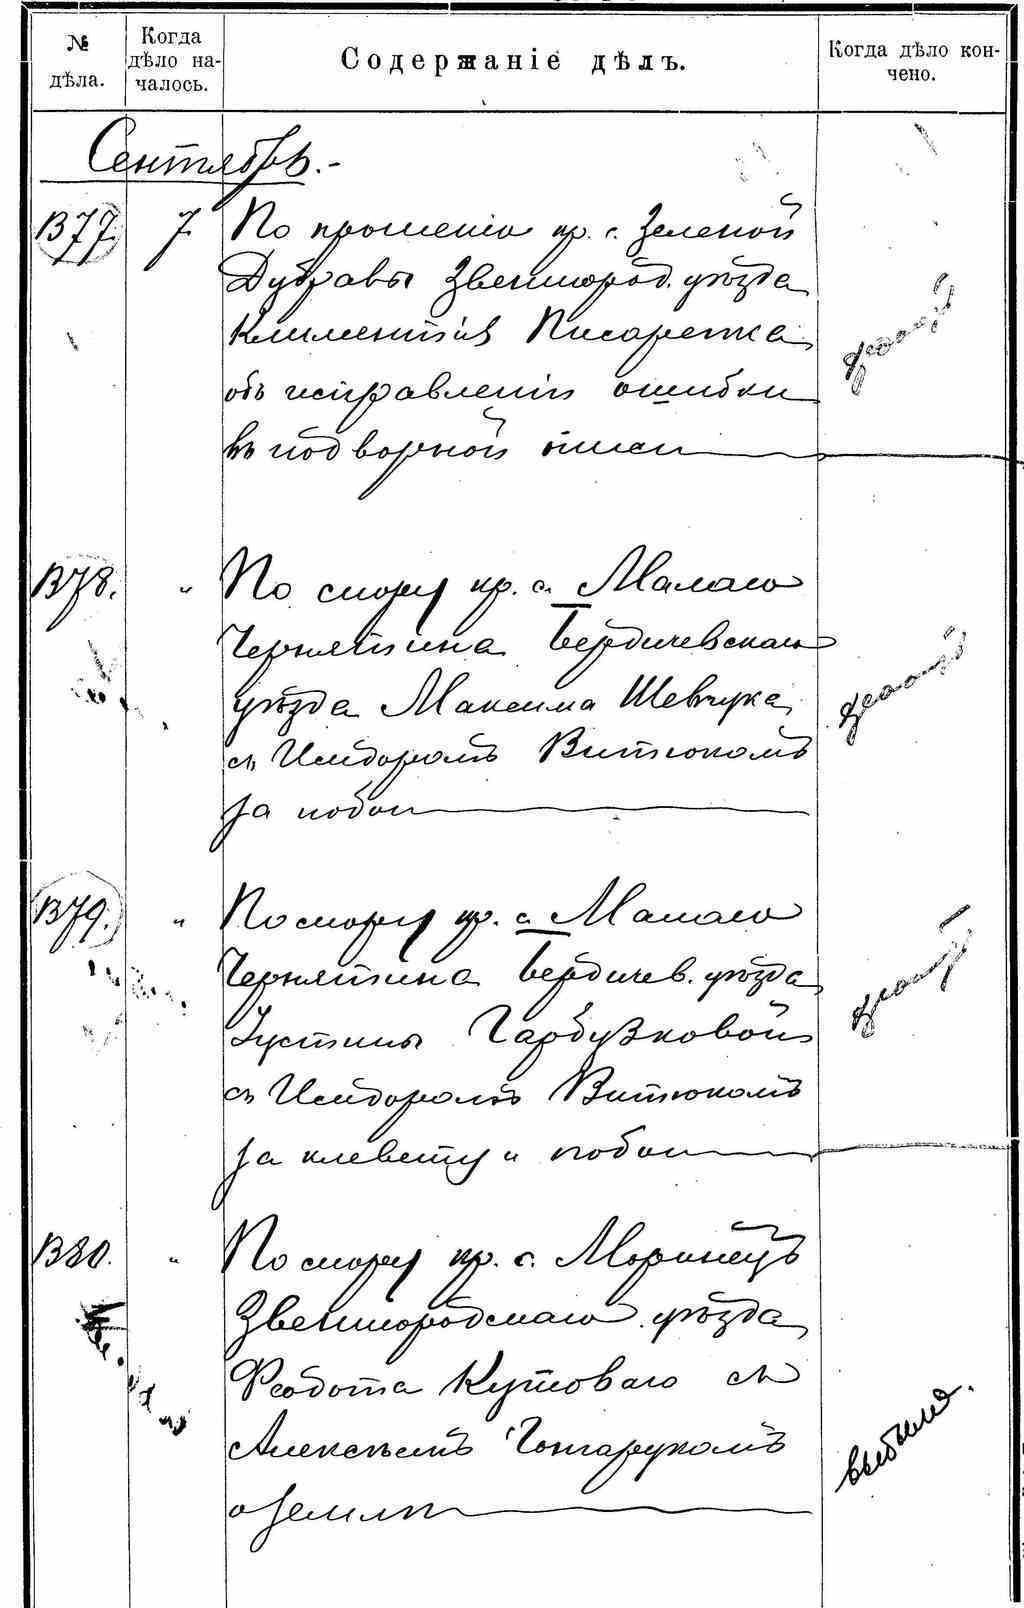 № дѣла.
Когда дѣло на-
чалось.
Содержаніе дѣлъ.
Когда дѣло кон-
чено.
Сентябрь.-
1377. 7. По прошенію кр. с. Зеленой
Дубравы Звенигород. уѣзда
Климентія Писаренка
объ исправленіи ошибки
въ подворной описи
1378. „ По спору кр. с. Малаго
Чернятина Бердичевскаго
уѣзда Максима Шевчука
съ Исидоромъ Витюкомъ
за побои
1379. „ По спору кр. с. Малаго
Чернятина Бердичев. уѣзда
Іустины Гарбузковой
съ Исидоромъ Витюкомъ
за клевету и побои
1380. „ По спору кр. с. Моринецъ
Звенигородскаго уѣзда
Федота Кутоваго съ
Алексѣемъ Гончарукомъ
о землѣ
выбыло.